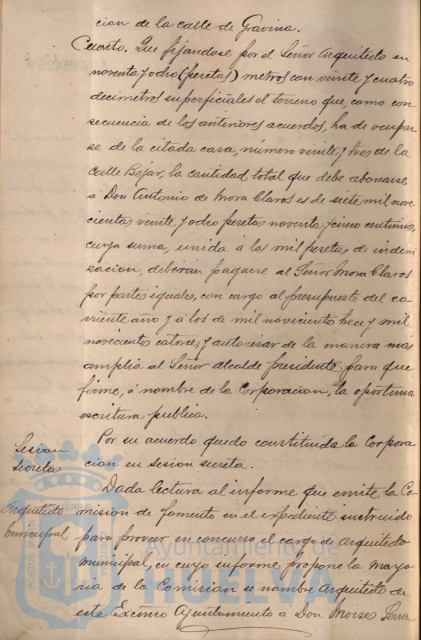 cion de la calle de Gravina.
Cuarto. Que fijandose por el Señor Arquitecto en
noventa y ocho (pesetas) metros con veinte y cuatro
decimetros superficiales el terreno que, como con-
secuencia de los anteriores acuerdos, ha de ocupar-
se de la citada casa, número veinte y tres de la
calle Bejar, la cantidad total que debe abonarse
a Don Antonio de Mora Claros es de siete mil nove-
cientas veinte y ocho pesetas noventa y cinco centimos,
cuya suma, unida á las mil pesetas de indem-
nizacion, deberán pagarse al Señor Mora Claros
por partes iguales, con cargo al presupuesto del co-
rriente año y á los de mil novecientos trece y mil
novecientos catorce, y autorizar de la manera mas
amplia al Señor alcalde presidente para que
firme, á nombre de la Corporacion, la oportuna
escritura publica.
Sesion
secreta
Por su acuerdo quedo constituida la Corpora-
cion en sesion secreta.
Arquitecto
municipal
Dada lectura al informe que emite la Co-
mision de fomento en el expediente instruido
para proveer en concurso el cargo de Arquitecto
municipal, en cuyo informe propone la mayo-
ria de la Comision se nombre Arquitecto de
este Excmo Ayuntamiento a Don Moises Serra
Ayuntamiento de
HUELVA